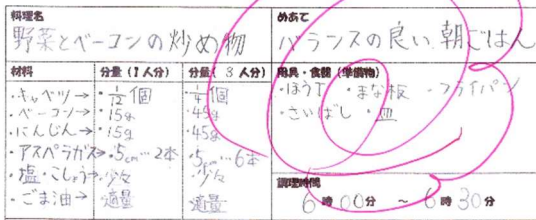 料理名
野菜とベーコンの炒め物
めあて
バランスの良い朝ごはん
材料 分量(1人分) 分量(3人分)
・キャベツ→ ・1/12個 ・1/4個
・ベーコン→ ・15g ・45g
・にんじん→ ・15g ・45g
・アスペラガス→ ・5cm…2本 ・5cm…6本
・塩・こしょう→ 少々 少々
・ごま油→ 適量 適量
用具・食器(準備物)
・ほう丁 ・まな板 ・フライパン
・さいばし ・皿
調理時間
6時00分 ~ 6時30分